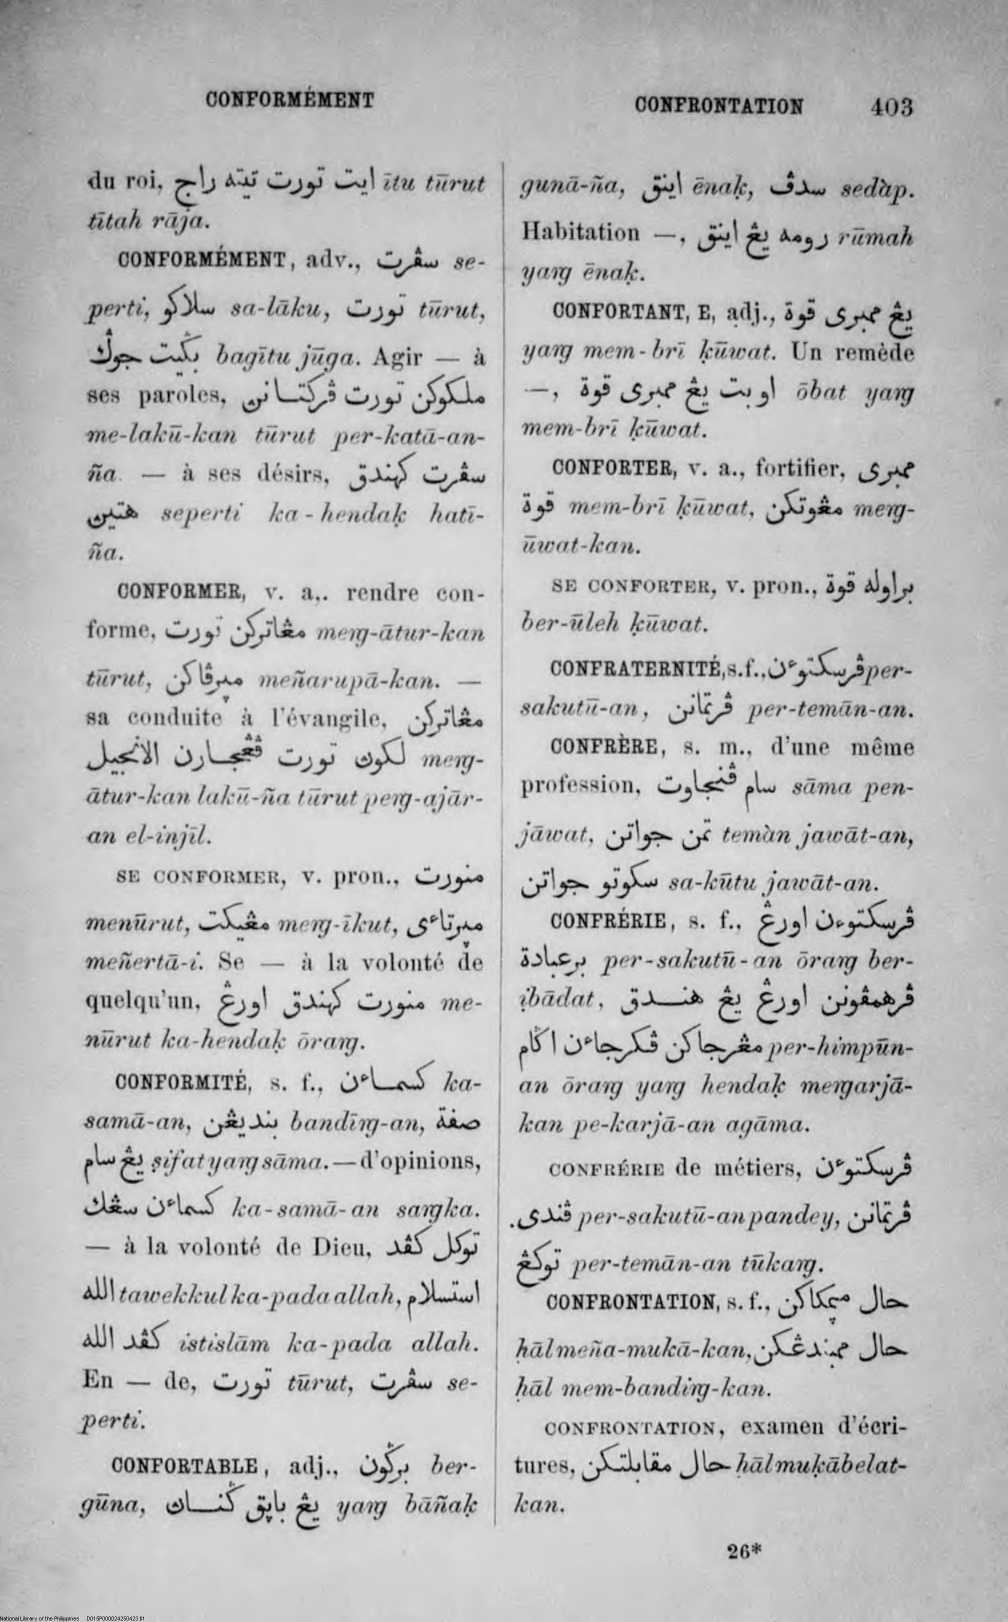 CONFORMÉMENT
CONFRONTATION 403
du roi, ايت تورت تيته راج ītu tūrut
tītah rāja.
CONFORMÉMENT, adv., سڤرت se-
perti, سلاكو sa-lāku, تورت tūrut,
بݢيت جوݢ bagītu jūga. Agir — à
ses paroles, ملكوكن تورت ڤركتانن
me-lakū-kan tūrut per-katā-an-
ña. — à ses désirs, سڤرت كهندق
هتين seperti ka-hendaḳ hatī-
ña.
CONFORMER, v. a., rendre con-
forme, مڠاتركن تورت meŋ-ātur-kan
tūrut, meñarupā-kan. —
sa conduite à l'évangile, مڠاتركن
لكون تورت ڤڠجارن الانجيل meŋ-
ātur-kan lakū-ña tūrut peŋ-ajār-
an el-injīl.
SE CONFORMER, v. pron., منورت
menūrut, مڠيكت meŋ-īkut,
meñertā-i. Se — à la volonté de
quelqu'un, منورت كهندق اورڠ me-
nūrut ka-hendaḳ ōraŋ.
CONFORMITÉ, s. f., كسماءن ka-
samā-an, بنديڠن bandīŋ-an, صفة
يڠ سام ṣifat yaŋ sāma. — d'opinions,
كسماءن سڠك ka-samā-an saŋka.
— à la volonté de Dieu, توكل كڤد
الله tawekkul ka-pada allah, استسلام
كڤد الله istislām ka-pada allah.
En — de, تورت tūrut, سڤرت se-
perti.
CONFORTABLE, adj., برݢون ber-
gūna, يڠ باپق ݢنان yaŋ bāñaḳ
gunā-ña, اينق ēnaḳ, سدڤ sedàp.
Habitation —, رومه يڠ اينق rūmah
yaŋ ēnaḳ.
CONFORTANT, E, adj., يڠ ممبرى قوة
yaŋ mem-brī ḳūwat. Un remède
—, اوبت يڠ ممبرى قوة ōbat yaŋ
mem-brī ḳūwat.
CONFORTER, v. a., fortifier, ممبرى
قوة mem-brī ḳūwat, مڠوتكن meŋ-
ūwat-kan.
SE CONFORTER, v. pron., براوله قوة
ber-ūleh ḳūwat.
CONFRATERNITÉ, s. f., ڤرسكتوءن per-
sakutū-an, ڤرتمانن per-temān-an.
CONFRÈRE, s. m., d'une même
profession, سام ڤنجاوت sāma pen-
jāwat, تمن جواتن temàn jawāt-an,
سكوتو جواتن sa-kūtu jawāt-an.
CONFRÉRIE, s. f., ڤرسكتوءن اورڠ
برعبادة per-sakutū-an ōraŋ ber-
ịbādat, ڤرهمڤونن اورڠ يڠ هندق
مڠرجاكن ڤكرجاءن اݢام per-himpūn-
an ōraŋ yaŋ hendaḳ meŋarjā-
kan pe-karjā-an agāma.
CONFRÉRIE de métiers, ڤرسكتوءن
ڤندى per-sakutū-an pandey, ڤرتمانن
توكڠ per-temān-an tūkaŋ.
CONFRONTATION, s. f., حال مپمكاكن
ḥāl meña-mukā-kan, حال ممبندڠكن
ḥāl mem-bandiŋ-kan.
CONFRONTATION, examen d'écri-
tures, حال مقابلتكن ḥāl muḳābelat-
kan.
26*
National Library of the Philippines